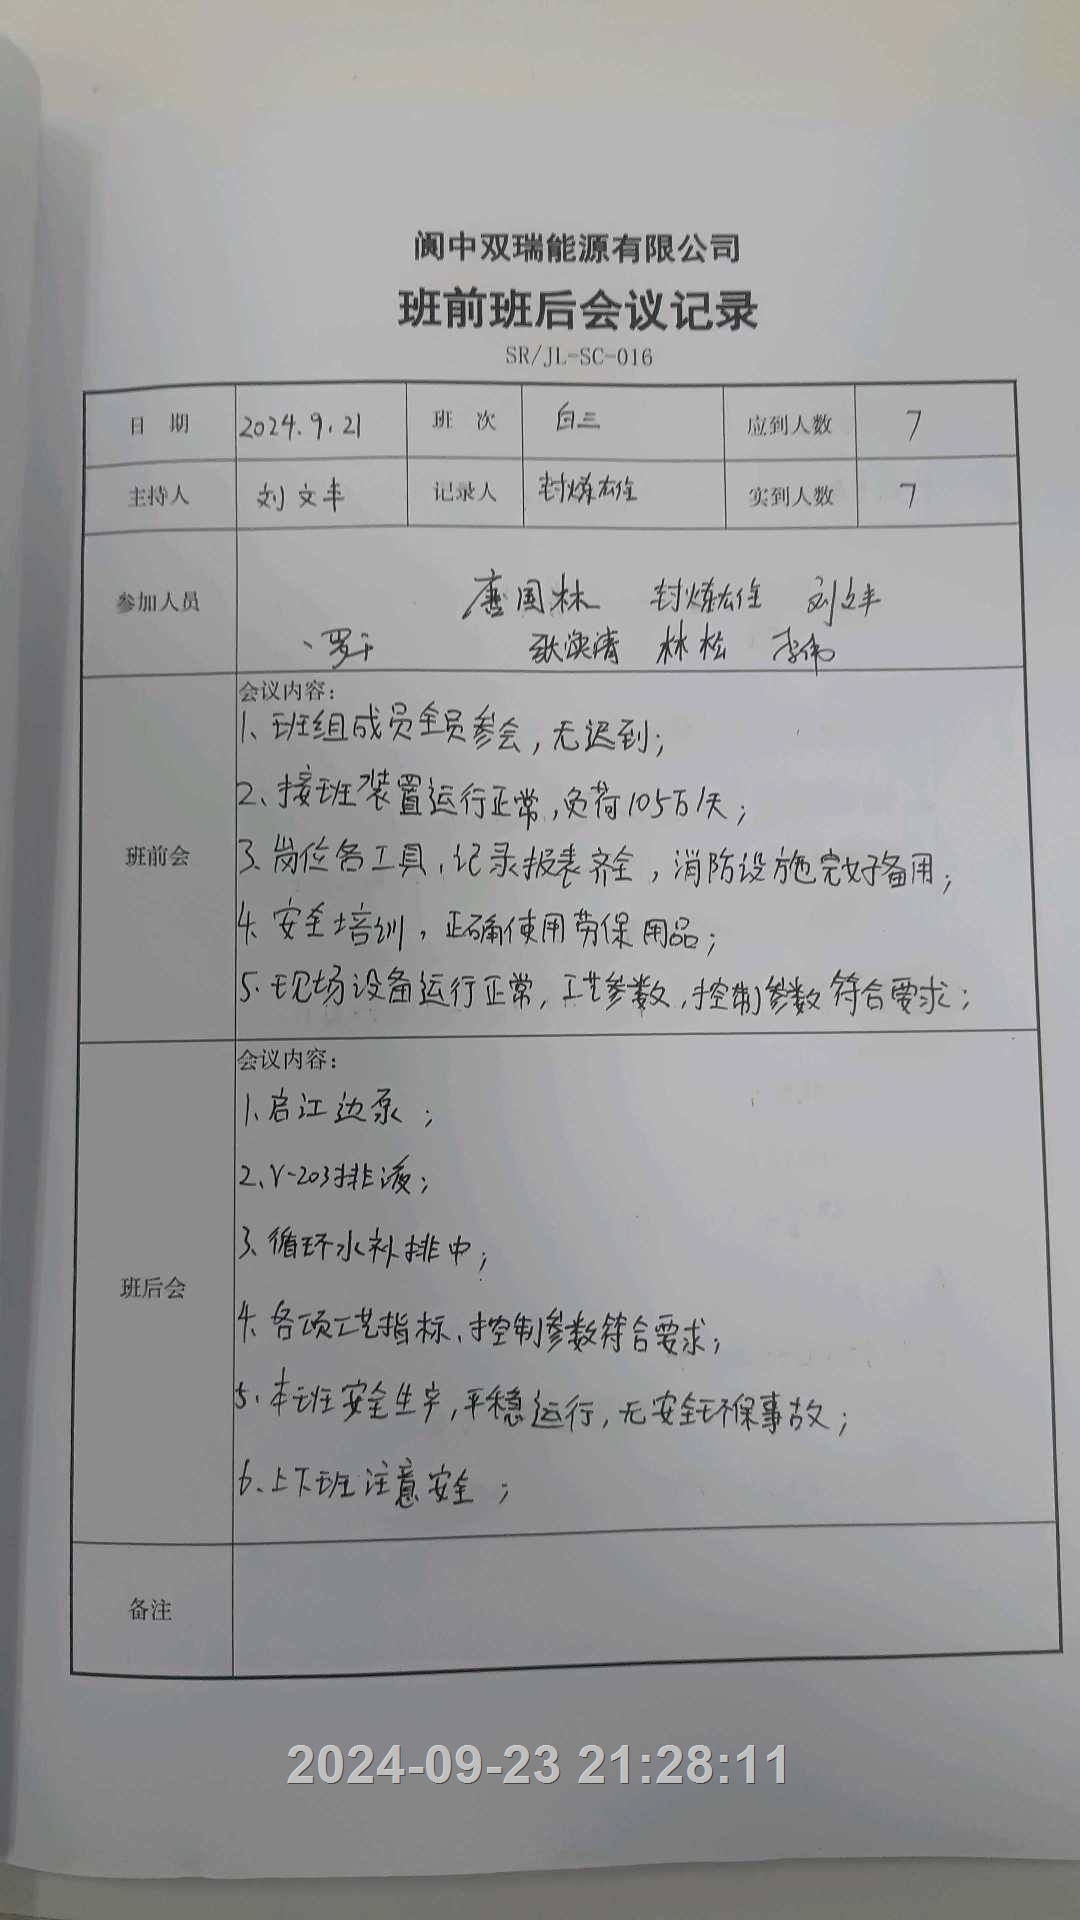 阆中双瑞能源有限公司
班前班后会议记录
SR/JL-SC-016
日 期 2024.9.21 班 次 白三 应到人数 7
主持人 刘文丰 记录人 封炼雄 实到人数 7
参加人员 唐国林 封炼雄 刘文丰
罗干 张焕清 林松 李伟
会议内容：
1、班组成员全员参会，无迟到；
2、接班装置运行正常，负荷105万/天；
班前会 3、岗位各工具，记录报表齐全，消防设施完好备用；
4、安全培训，正确使用劳保用品；
5、现场设备运行正常，工艺参数，控制参数符合要求；
会议内容：
1、启江边泵；
2、V-203排液；
3、循环水补排中；
班后会
4、各项工艺指标、控制参数符合要求；
5、本班安全生产，平稳运行，无安全环保事故；
6、上下班注意安全；
备注
2024-09-23 21:28:11